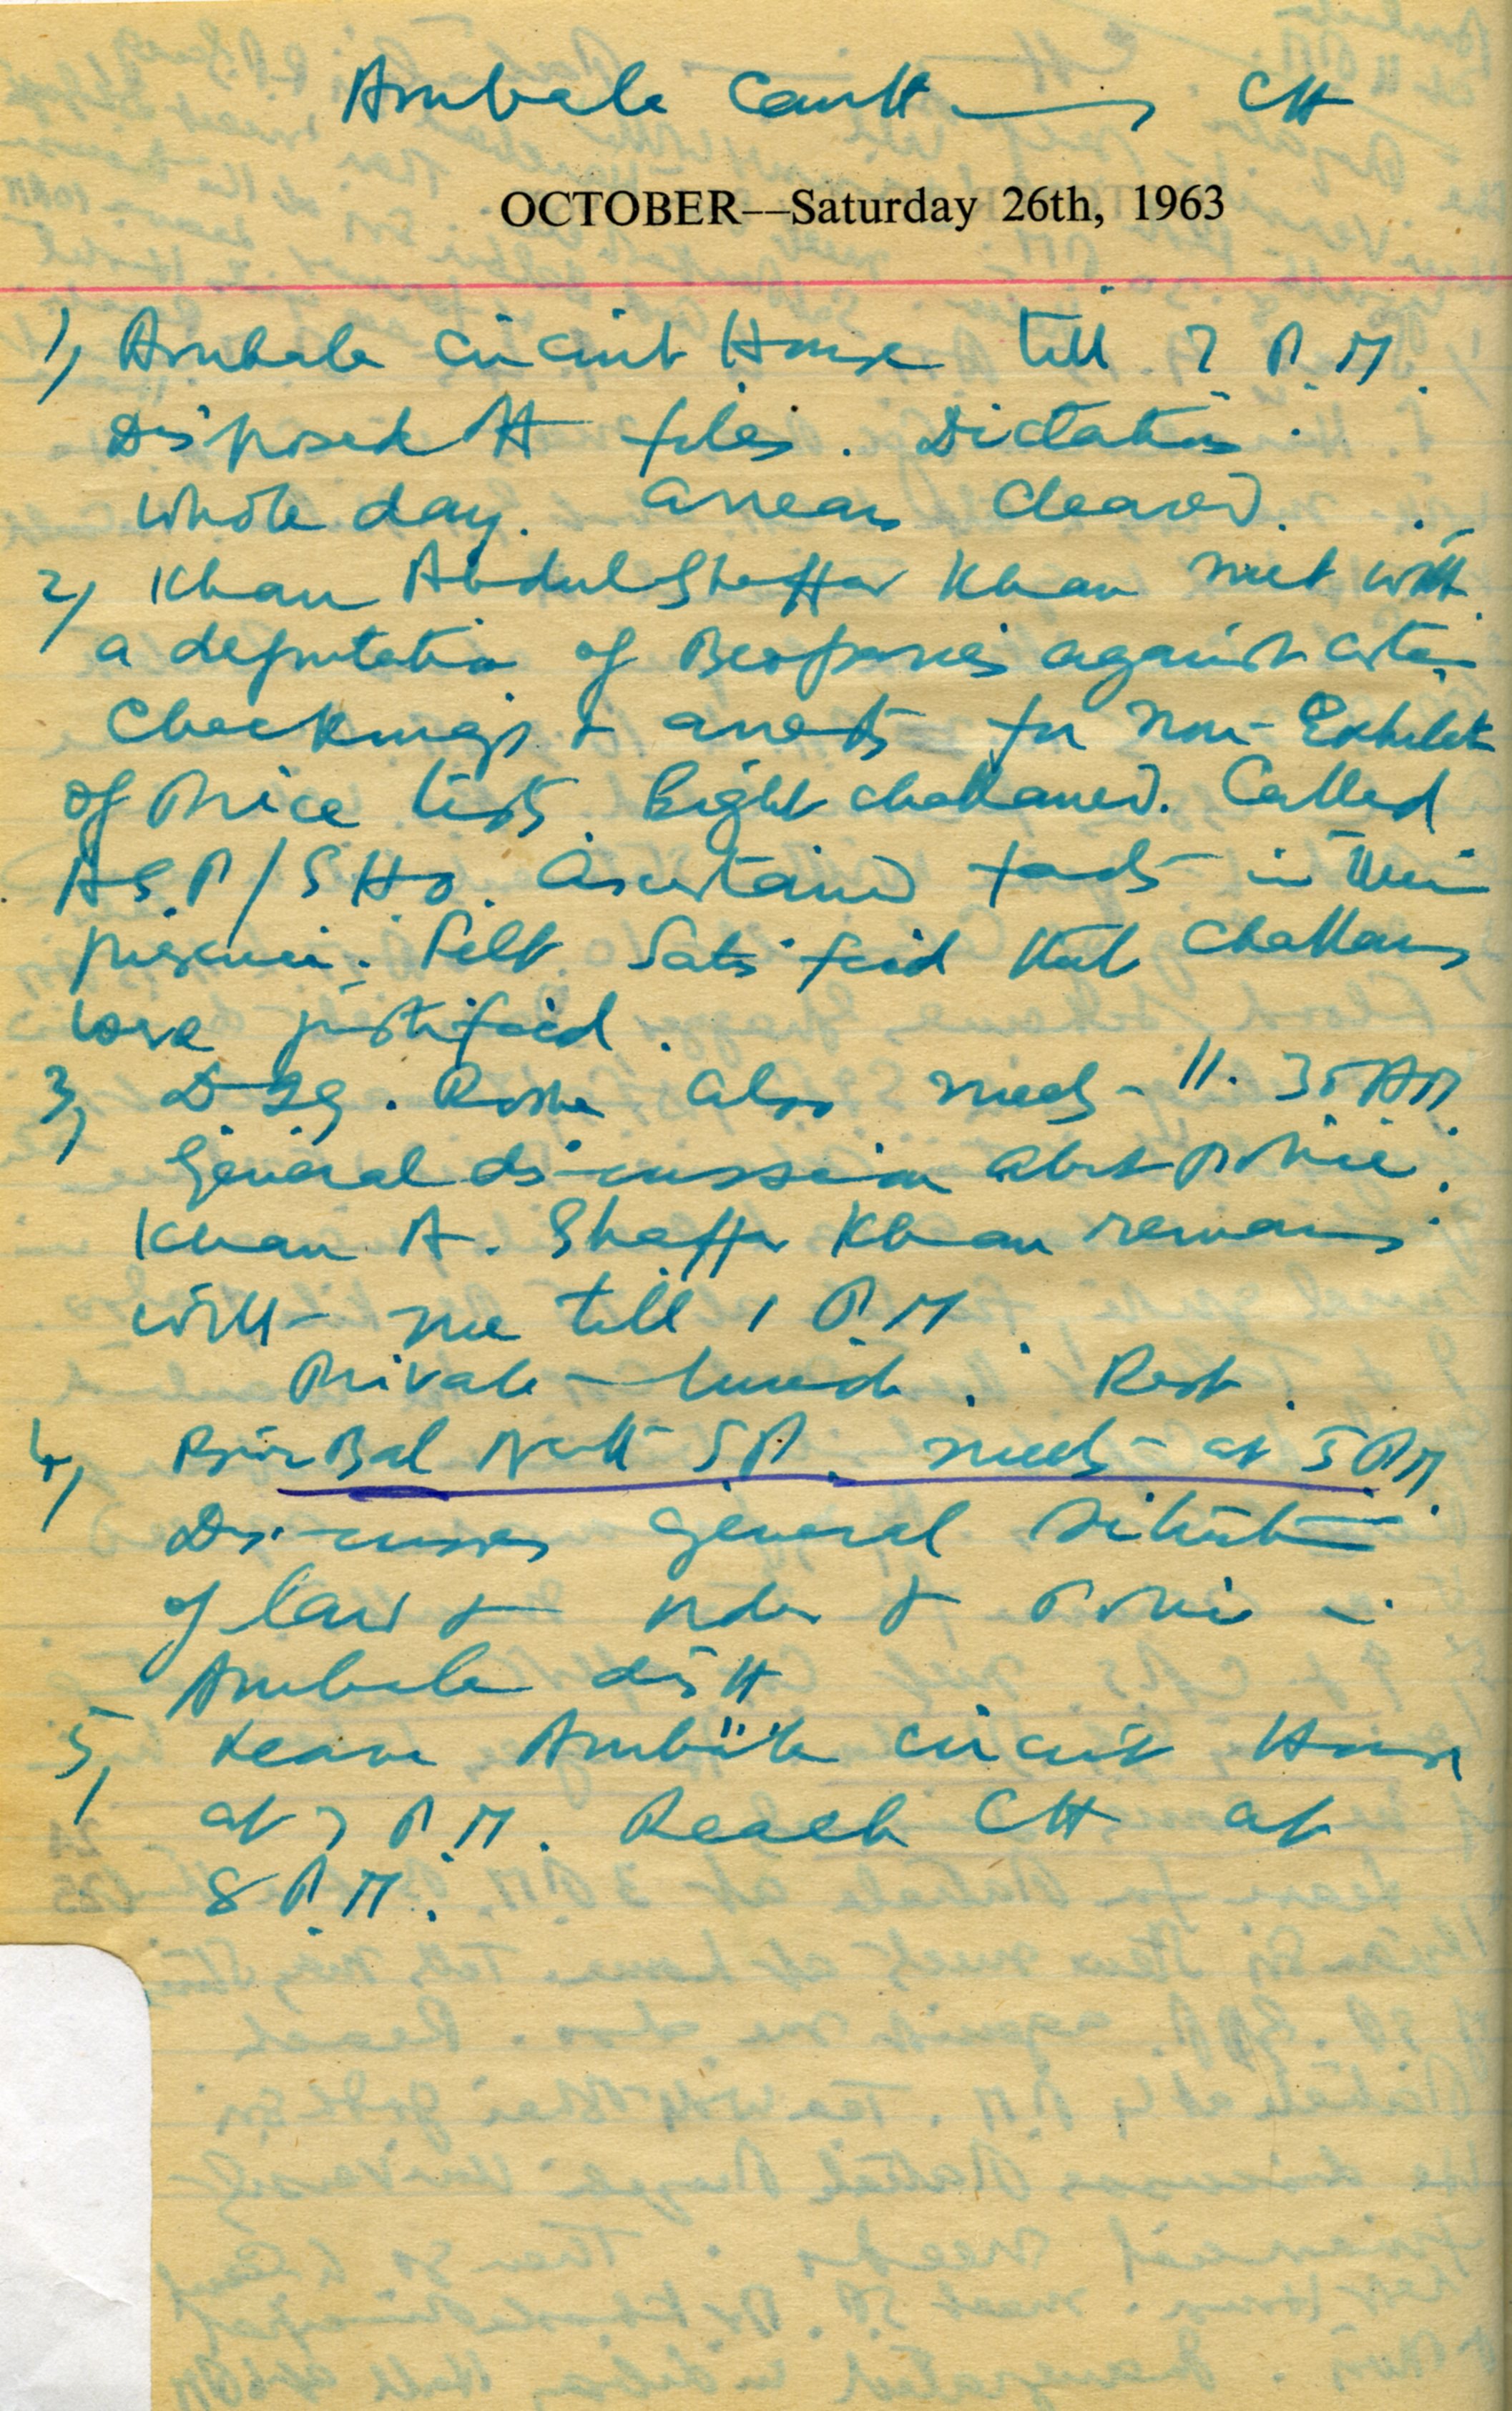 Ambala Cantt — CH
OCTOBER—Saturday 26th, 1963
1) Ambala Circuit House till 7 P.M.
Disposed off files. Dictation
whole day. Arrears cleared.
2) Khan Abdul Ghaffar Khan met with
a deputation of Beoparies against certain
Checkings & arrests for non-Exhibit
of Price lists. Eight challaned. Called
ASP/SHO. Ascertained facts in their
presence. Felt satisfied that challans
were justified.
3) DIG. also meets 11.30 AM.
General discussion about police.
Khan A. Ghaffar Khan remains
with me till 1 P.M.
Private lunch. Rest.
4) Birbal Nath SP. meets at 5 PM.
Discusses general situation
of law & order & Police in
Ambala distt
5) Leave Ambala Circuit House
at 7 P.M. Reach CH at
8 P.M.